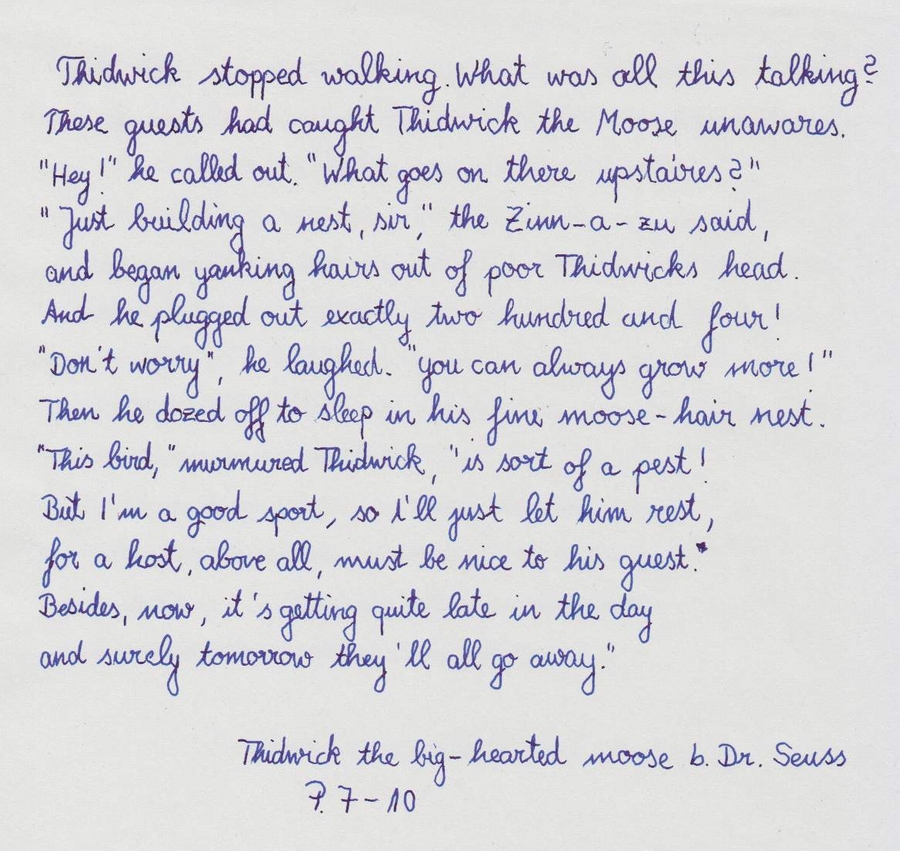 Thidwick stopped walking. What was all this talking?
These guests had caught Thidwick the Moose unawares.
"Hey!" he called out. "What goes on there upstaires?"
"Just building a nest, sir," the Zinn-a-zu said,
and began yanking hairs out of poor Thidwicks head.
And he plugged out exactly two hundred and four!
"Don't worry", he laughed. "you can always grow more!"
Then he dozed off to sleep in his fine moose-hair nest.
"This bird," murmured Thidwick, "is sort of a pest!
But I'm a good sport, so I'll just let him rest,
for a host, above all, must be nice to his guest."
Besides, now, it's getting quite late in the day
and surely tomorrow they'll all go away."
Thidwick the big-hearted moose b. Dr. Seuss
P. 7-10